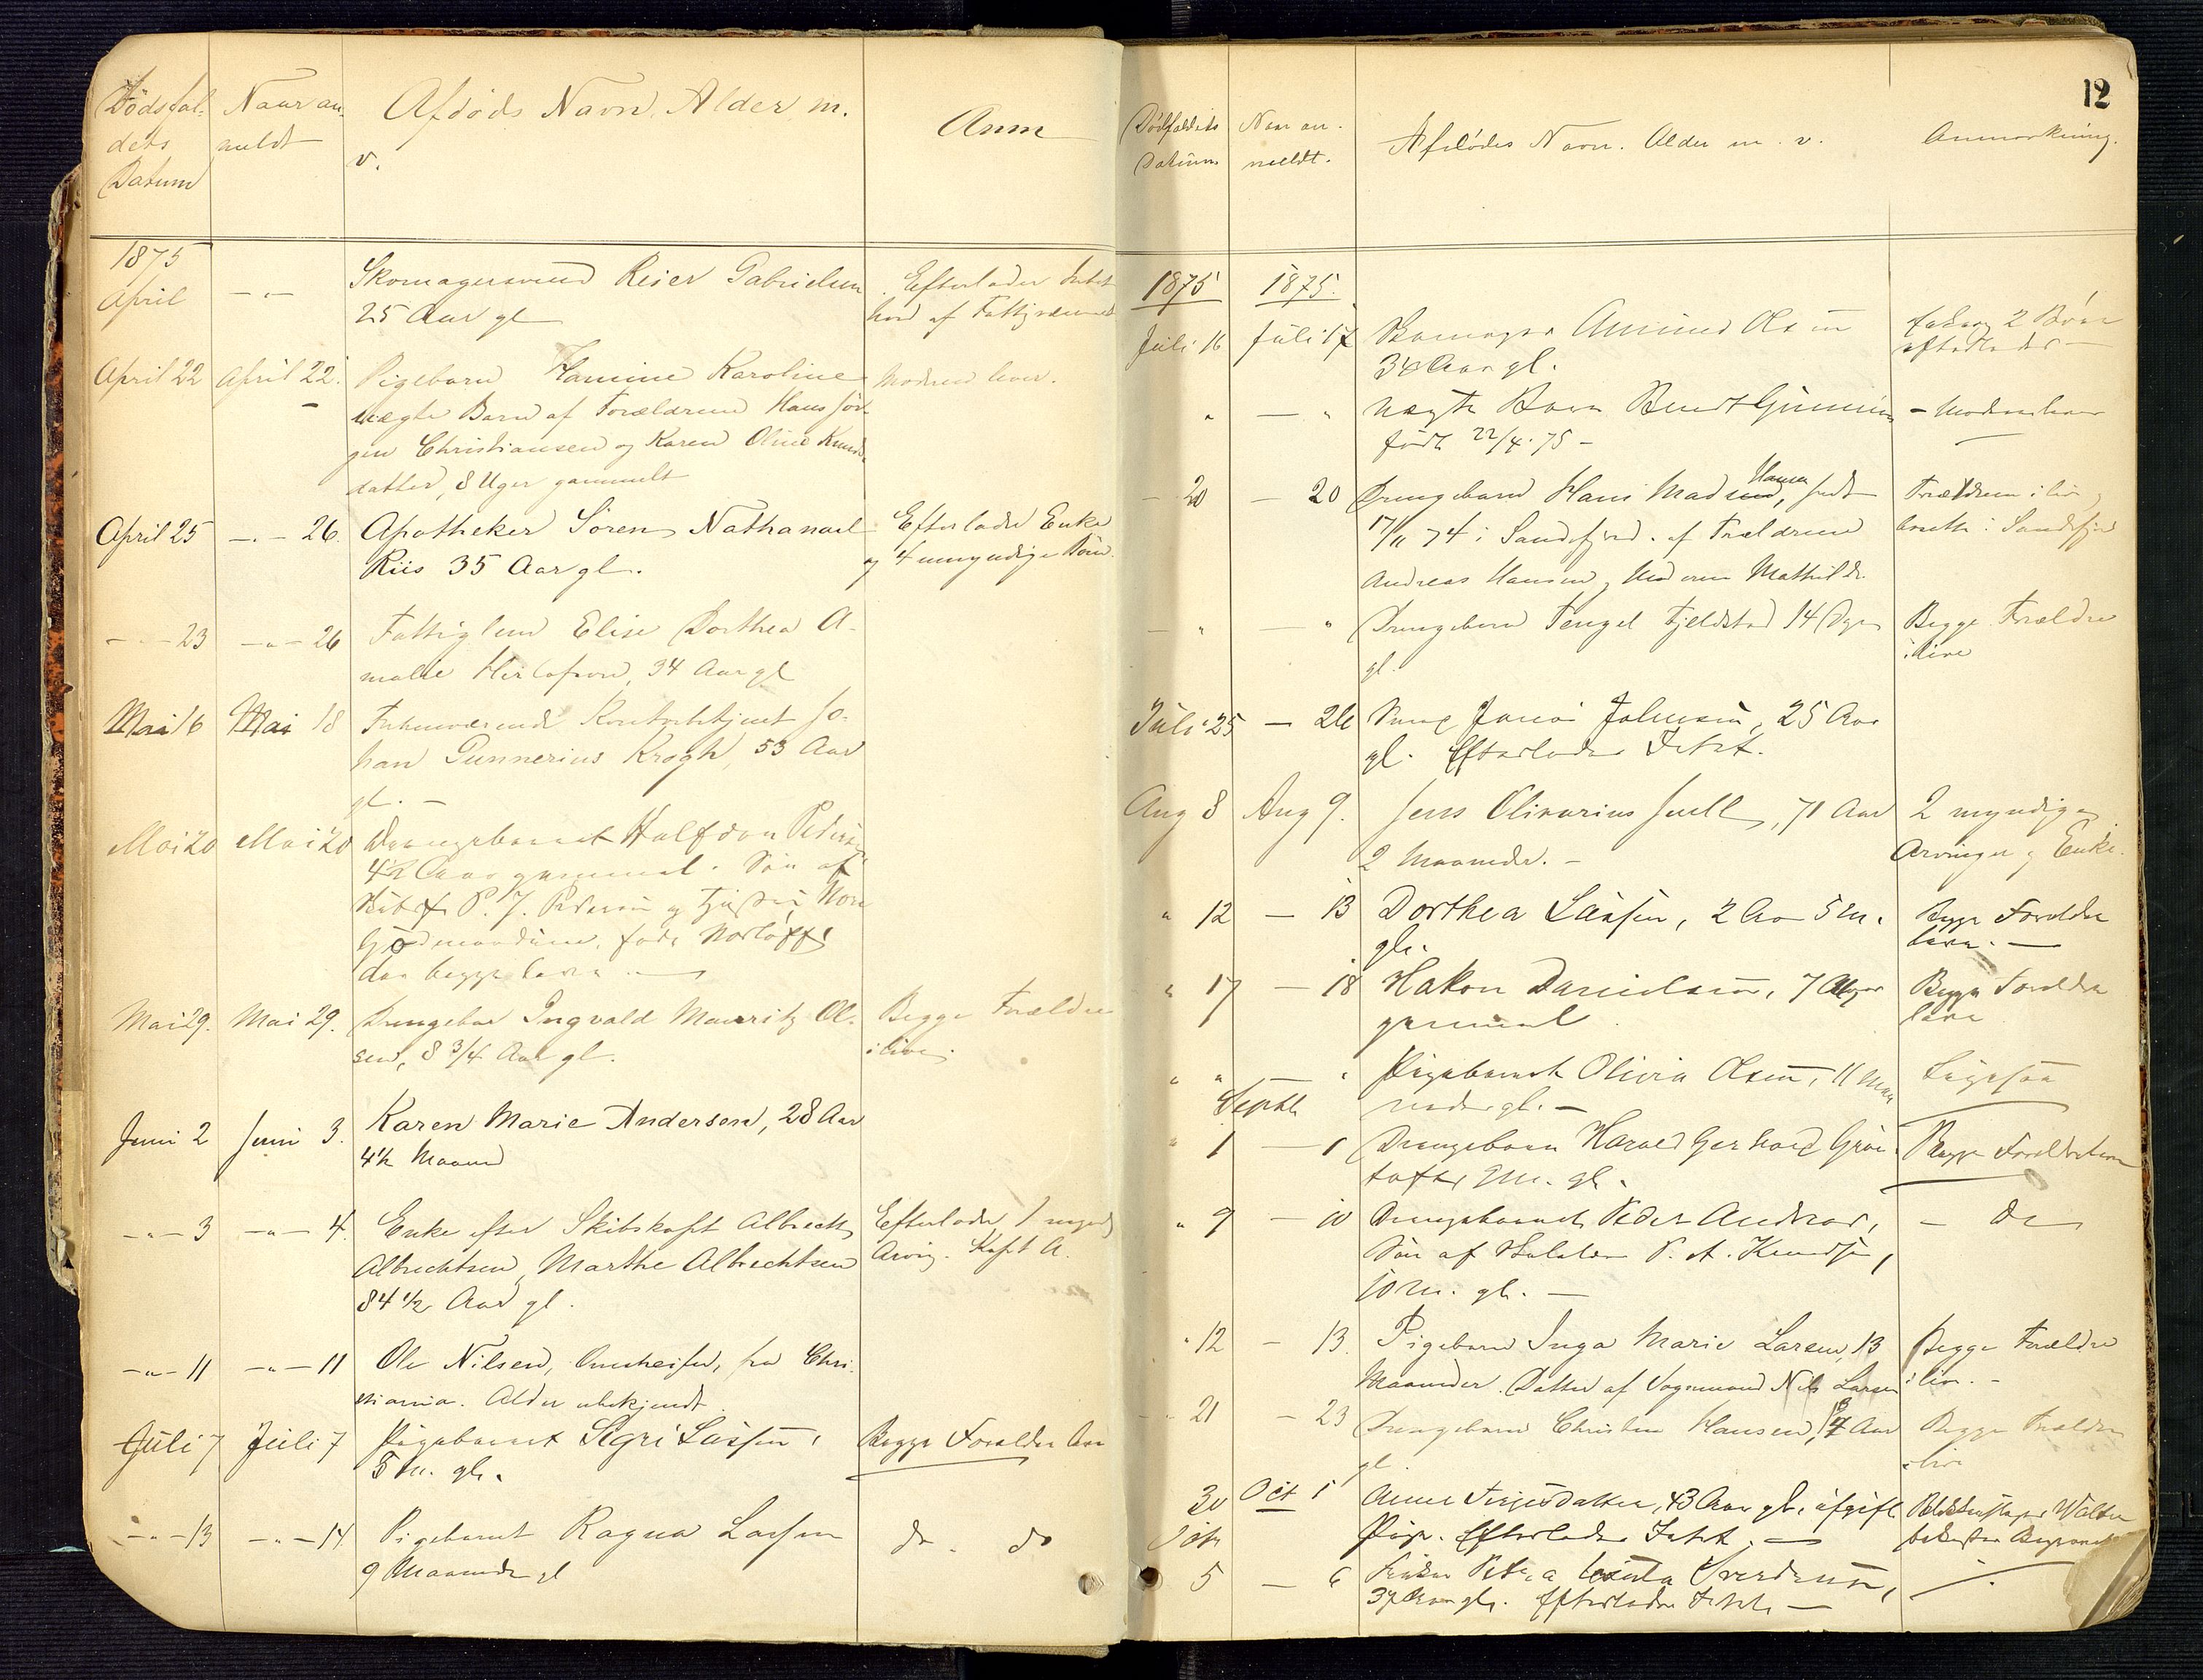 Dödsfal-
dets
Datum
Naar an-
meldt
Afdöds Navn, Alder m.
v.
Anm
1875
April
— " —
Skomagersvend Reier Gabrielsen
25 Aar gl
Efterlader Intet
April 22
April 22.
Pigebarn Hamine Karoline
uægte Barn af Forældrene Hans Jör-
gen Christiansen og Karen Oline Knuds-
datter, 8 Uger gammelt
Moderen lever.
April 25
— " — 26.
Apotheker Sören Nathanael
Riis 35 Aar gl.
Efterlader Enke
og 4 umyndige Börn.
— " — 23
— " — 26
Fattiglem Elise Dorthea A-
malie 34 Aar gl
Mai 16
Mai 18
Forhenværende Jo-
han Gunnerius Krogh, 53 Aar
gl. —
Mai 20
Mai 20
Drengebarnet Halfdan Pedersen
4½ Aar gammel. Sön af
P. J. Pedersen og
begge leve —
Mai 29.
Mai 29.
Drengebar Ingvald Mauritz Ol-
sen, 8 3/4 Aar gl.
Begge Forældre
i live.
Juni 2
Juni 3.
Karen Marie Andersen, 28 Aar
4½ Maaned
— " — 3
— " — 4.
Enke efter Skibskapt Albrecht
Albrechtsen, Marthe Albrechtsen
84 1/2 Aar gl.
Efterlader 1 myndig
Arving. Kapt A.
— " — 11
— " — 11
Ole Nilsen, fra Chri-
stiania. Alder ubekjendt.
Juli 7
Juli 7
Pigebarnet Sigri Lassen,
5 M. gl.
Begge Forældre leve
— " — 13
— " — 14
Pigebarnet Ragna Larsen
9 Maaneder gl
do. do
12
Dödsfaldets
Datum
Naar an-
meldt.
Afdödes Navn. Alder m. v.
Anmærkning.
1875
1875.
Juli 16
Juli 17
Amund Olsen
34 Aar gl.
2 Börn
efterlades —
"
— "
uægte Barn Berndt
födt 22/4. 75 —
— Moderen lever
— 20
— 20
Drengebarn Hans Madsen Hansen, födt
17/11 74 i Sandefjord. af Forældrene
Andreas Hansen og Moderen Mathilde
Forældrene i live,
bosatte i Sandefjord
— "
— "
Drengebarn Tengel Fjeldstad 14 Dage
gl.
Begge Forældre
i live
Juli 25
— 26
Johnsen, 25 Aar
gl. Efterlader Intet.
Aug 8
Aug 9.
Jens Olivarius Juell, 71 Aar
2 Maaneder. —
2 myndige
Arvinger og Enke.
" 12
— 13
Dorthea Lassen, 2 Aar 5 M.
gl.
Begge Forældre
leve. —
" 17
— 18
Hakon Danielsen, 7 Uger
gammel.
Begge Forældre
leve
" "
"
Pigebarnet Olivia Olsen, 11 Maa
neder gl. —
Ligesaa
Septbr
" 1
— 1
Drengebarn Harald Gerhard Grön-
toft, M. gl.
Begge Forældre leve
" 9
— 10
Drengebarnet Peder Andreas,
Sön af P. A. Knudsen,
10 M. gl. —
— Do
" 12
— 13.
Pigebarn Inga Marie Larsen, 13
Maaneder. Datter af Vognmand Nils Larsen
Begge Forældre
i live. —
— 21
— 23
Drengebarn Christen Hansen, Aar
gl.
Begge Forældre
i live
30
Oct 1
Anne Terjesdatter, 43 Aar gl. ugift
Pige. Efterlader Intet. —
Octr
5
— 6
Fröken Petra Sverdrup,
37 Aar gl. Efterlader Intet —